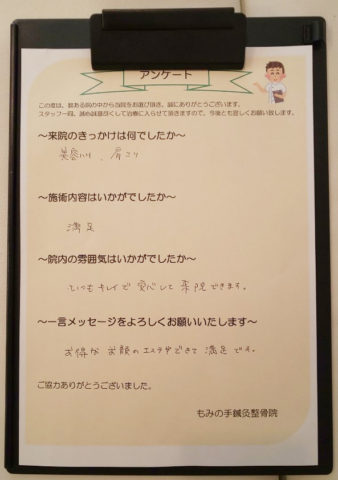 アンケート
この度は、数ある院の中から当院をお選び頂き、誠にありがとうございます。
スタッフ一同、誠心誠意尽くして治療に入らせて頂きますので、今後とも宜しくお願い致します。
～来院のきっかけは何でしたか～
美容鍼、肩こり
～施術内容はいかがでしたか～
満足
～院内の雰囲気はいかがでしたか～
いつもキレイで安心して来院できます。
～一言メッセージをよろしくお願いいたします～
お得なお顔のエステができて満足です。
ご協力ありがとうございました。
もみの手鍼灸整骨院